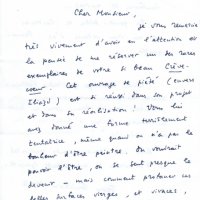 Cher Monsieur,
je vous remercie
très vivement d'avoir eu l'attention et
la pensée de me réserver un des rares
exemplaires de votre si beau Crève-
coeur. Cet ouvrage de piété (envers
) est si réussi dans son projet
et dans sa réalisation ! Vous lui
avez donné une forme terriblement
tentatrice, même quand on n'a pas le
bonheur d'être peintre. On voudrait
pouvoir d'être, on se sent presque le
devenir — mais comment profaner ces
belles surfaces vierges, et vivaces,